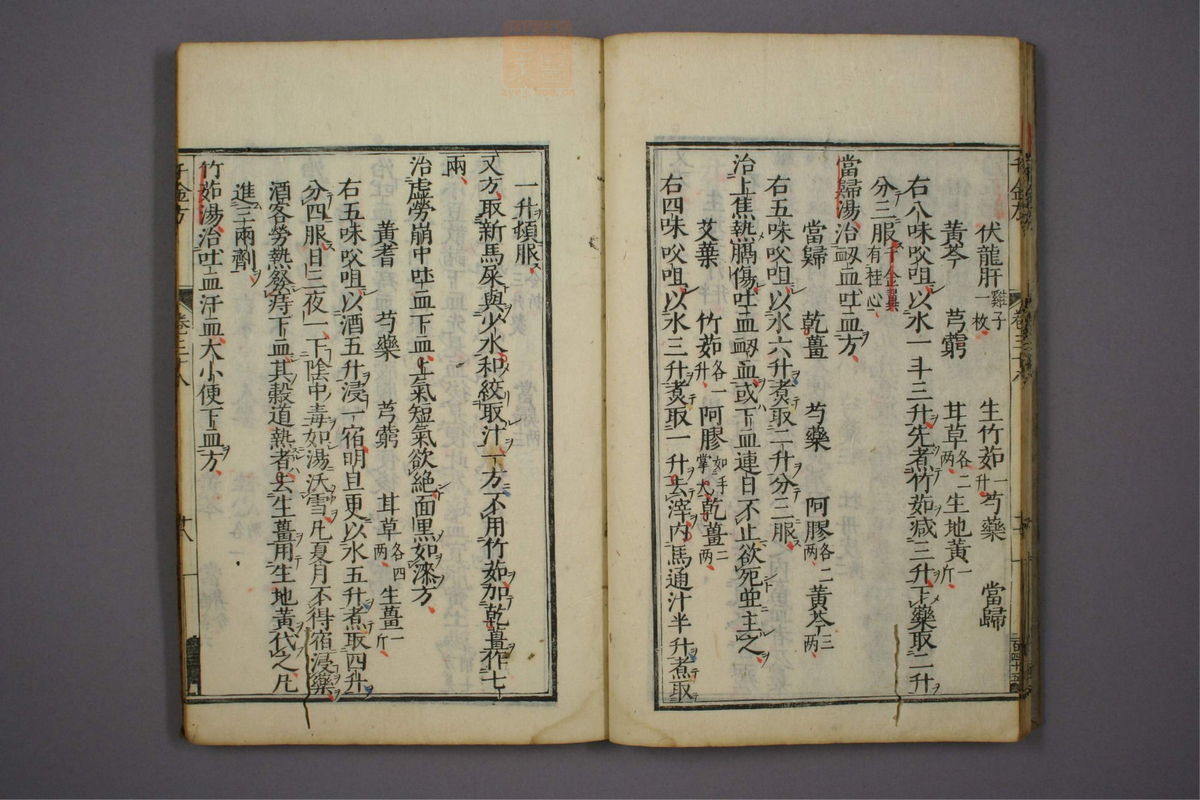 伏龍肝雞子一枚　生竹茹一升　芍藥　當歸
黃芩　芎藭　甘草各二兩　生地黃一斤
右八味㕮咀以水一斗三升先煮竹茹减三升下藥取二升
分三服千金翼有桂心
當歸湯治衂血吐血方
當歸　乾薑　芍藥　阿膠各二兩　黃芩三兩
右五味㕮咀以水六升煑取二升分三服
治上焦熱膈傷吐血衂血或下血連日不止欲死並主之
艾葉　竹茹各一升　阿膠如手掌大　乾薑二兩
右四味㕮咀以水三升煑取一升去滓内馬通汁半升煮取
一升頓服
又方取新馬屎與少水和絞取汁一方不用竹茹加乾薑作七
兩
治虛勞崩中吐血下血上氣短氣欲絕面黑如漆方
黃耆　芍藥　芎藭　甘草各四兩　生薑一斤
右五味㕮咀以酒五升浸一宿明旦更以水五升煮取四升
分四服日三夜一下陰中毒如湯沃雪凡夏月不得宿浸藥
酒客勞熱發痔下血其穀道熱者去生薑用生地黃代之凡
進三兩劑
竹茹湯治吐血汗血大小便下血方
千金方　卷三十八　十八